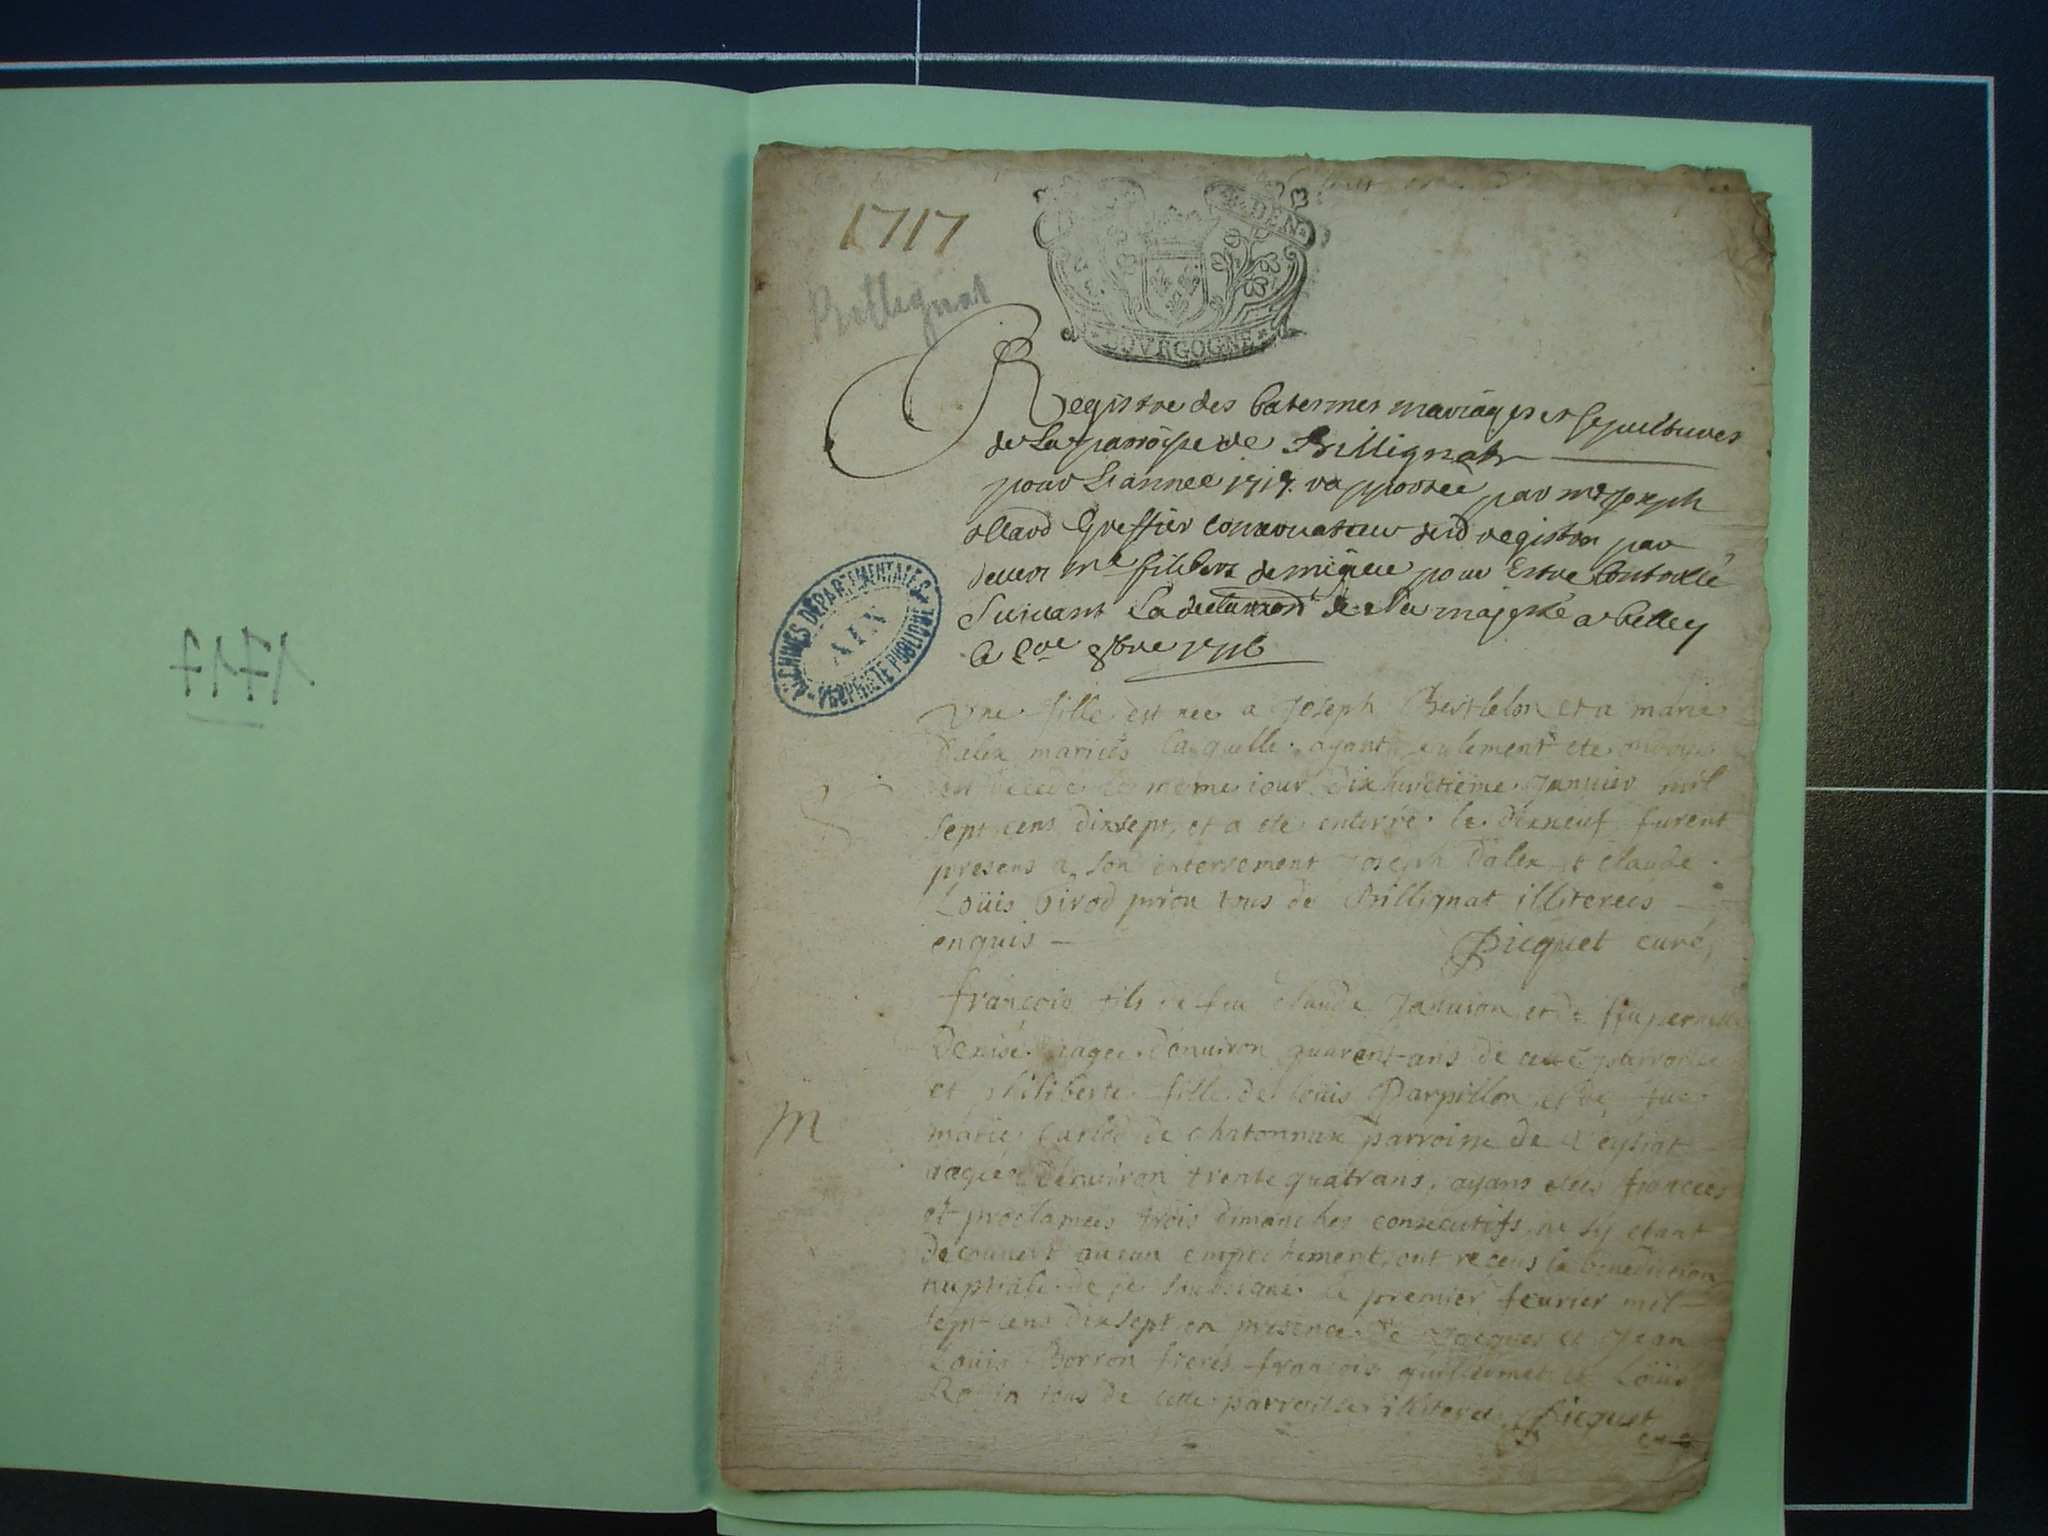 1717
1717
Brillignat
DEN
BOVRGOGNE
ARCHIVES DEPARTEMENTALES
AIN
PROPRIETE PUBLIQUE
Registre des batesmes mariages et sepultures
de La parroisse de Brillignat
pour L'année 1717. par mre Joseph
Greffier Conservateur desd registres par
devers me filibert de migieu pour Estre Controllé
Suivant La de Sa majesté a belley
le 8bre 1716
Une fille est née a Joseph Berthelon et a marie
Dalex mariés laquelle ayant seulement ete ondoyé
est decedé le meme iour dixhuictieme Janvier mil
sept cens dixsept, et a ete enterré le dixneuf furent
presens a son enterrement Joseph Dalex et claude
Loüis Girod tous de Brillignat illiterees
enquis
Picquet curé
françois fils de feu claude Januion et de
aagée d'enuiron quarent ans de cette parroisse
et philiberte fille de loüis Parpillon et de feue
M
marie de chatonnax parroisse de
aagée d'enuiron trente quatrans, ayans etés fiancees
et proclamees trois dimanches consecutifs ne sy etant
decouvert aucun empechement, ont receus la benediction
nuptiale de je soussigné le premier feurier mil
sept cens dixsept en presence de Jacques et Jean
Loüis Borron freres françois guillermet et Loüis
tous de cette parroisse illiteres Picquet
curé